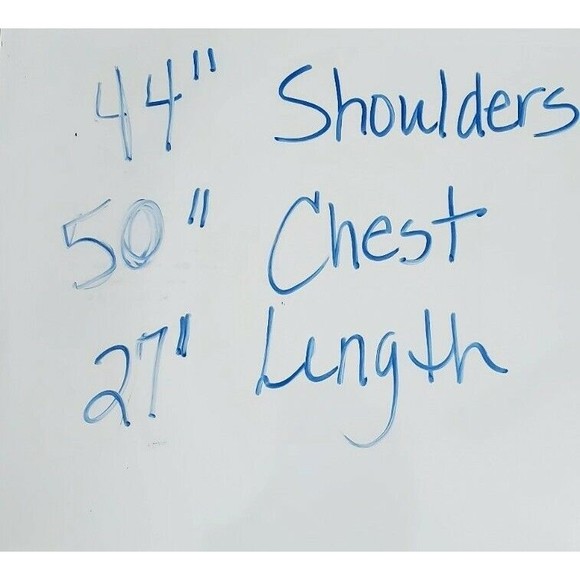 44" Shoulders
50" Chest
27" Length